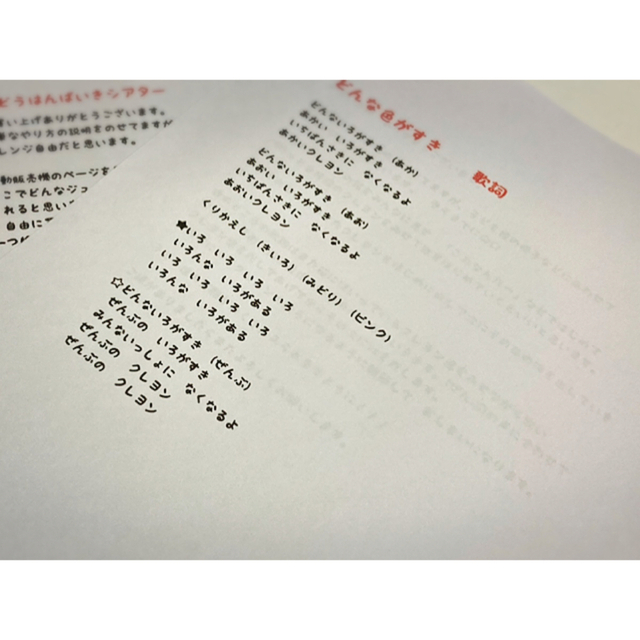 どうはんばいきシアター
い上げありがとうございます。
なやり方の説明をのせてますが
レンジ自由だと思います。
動販売機のページを
こでどんなジュ
れると思い
自由にて
一つ
どんな色がすき 歌詞
どんないろがすき (あか)
あかい いろがすき
いちばんさきに なくなるよ
あかいクレヨン
どんないろがすき (あお)
あおい いろがすき
いちばんさきに なくなるよ
あおいクレヨン
くりかえし (きいろ) (みどり) (ピンク)
★いろ いろ いろ いろ
いろんな いろがある
いろ いろ いろ いろ
いろんな いろがある
☆どんないろがすき (ぜんぶ)
ぜんぶの いろがすき
みんないっしょに なくなるよ
ぜんぶの クレヨン
ぜんぶの クレヨン